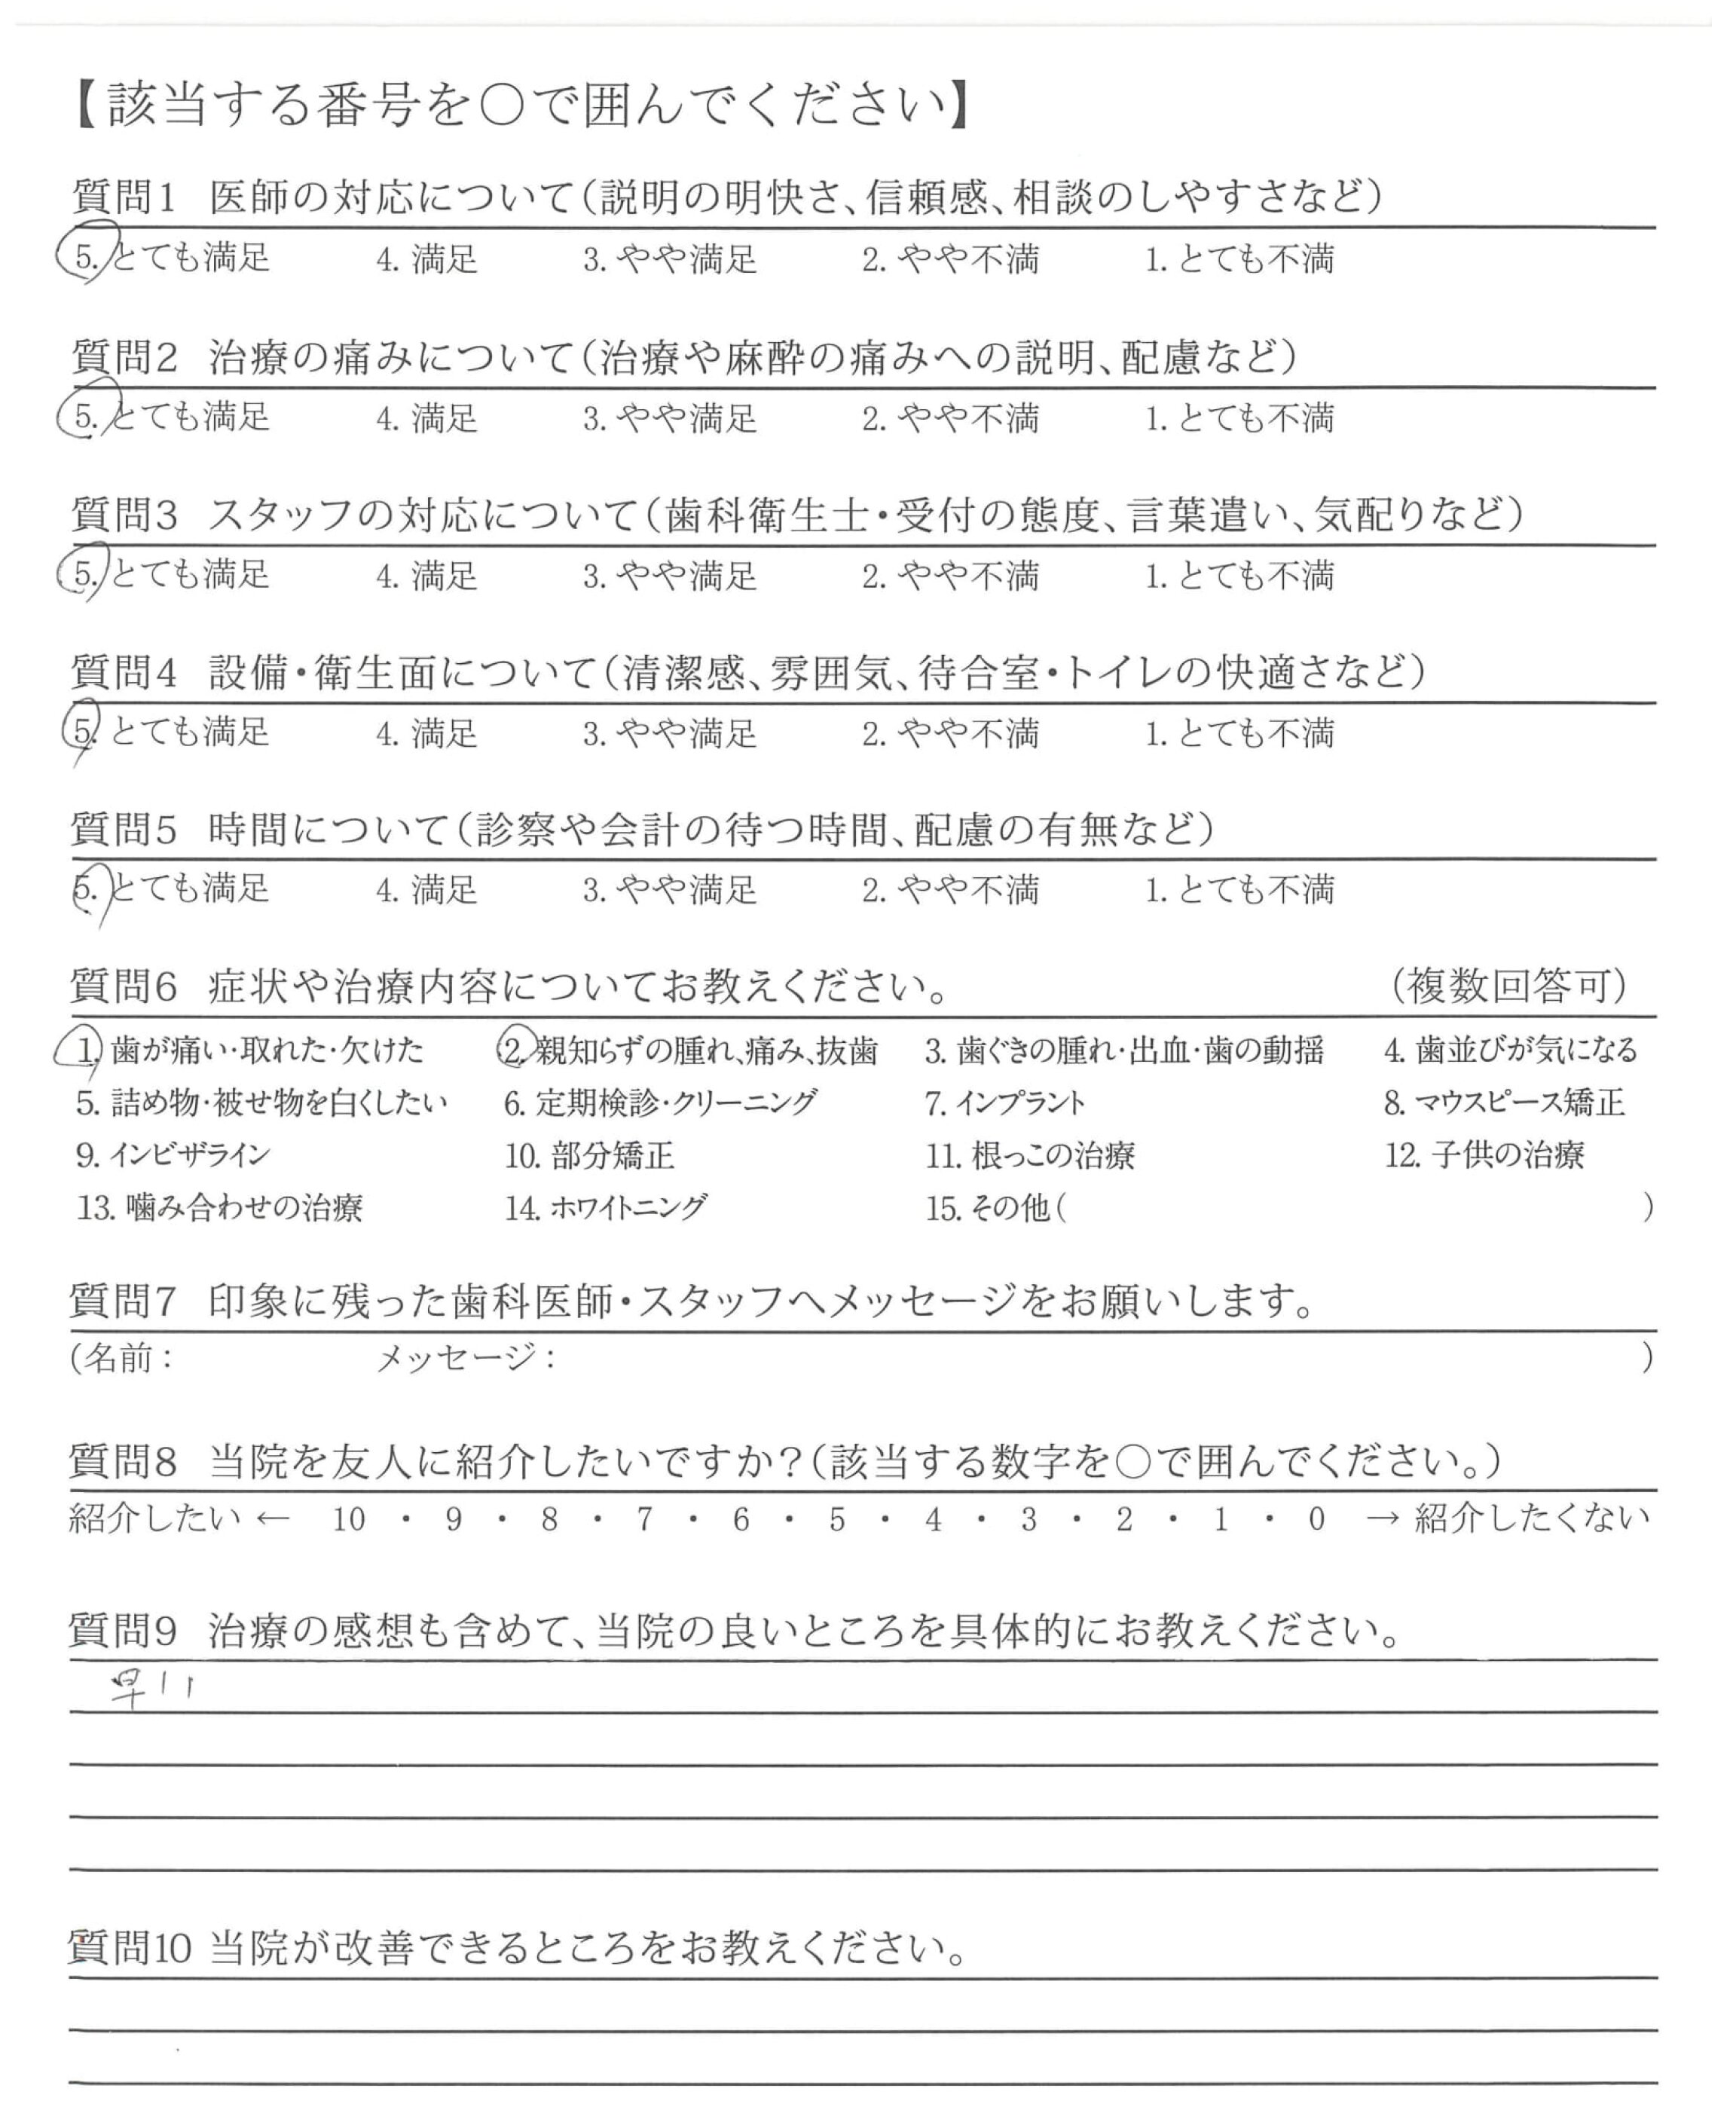 【該当する番号を○で囲んでください】
質問1 医師の対応について(説明の明快さ、信頼感、相談のしやすさなど)
5. とても満足 4. 満足 3. やや満足 2. やや不満 1. とても不満
質問2 治療の痛みについて(治療や麻酔の痛みへの説明、配慮など)
5. とても満足 4. 満足 3. やや満足 2. やや不満 1. とても不満
質問3 スタッフの対応について(歯科衛生士・受付の態度、言葉遣い、気配りなど)
5. とても満足 4. 満足 3. やや満足 2. やや不満 1. とても不満
質問4 設備・衛生面について(清潔感、雰囲気、待合室・トイレの快適さなど)
5. とても満足 4. 満足 3. やや満足 2. やや不満 1. とても不満
質問5 時間について(診察や会計の待つ時間、配慮の有無など)
5. とても満足 4. 満足 3. やや満足 2. やや不満 1. とても不満
質問6 症状や治療内容についてお教えください。 (複数回答可)
1. 歯が痛い・取れた・欠けた 2. 親知らずの腫れ、痛み、抜歯 3. 歯ぐきの腫れ・出血・歯の動揺 4. 歯並びが気になる
5. 詰め物・被せ物を白くしたい 6. 定期検診・クリーニング 7. インプラント 8. マウスピース矯正
9. インビザライン 10. 部分矯正 11. 根っこの治療 12. 子供の治療
13. 噛み合わせの治療 14. ホワイトニング 15. その他( )
質問7 印象に残った歯科医師・スタッフへメッセージをお願いします。
(名前: メッセージ: )
質問8 当院を友人に紹介したいですか?(該当する数字を○で囲んでください。)
紹介したい ← 10 ・ 9 ・ 8 ・ 7 ・ 6 ・ 5 ・ 4 ・ 3 ・ 2 ・ 1 ・ 0 → 紹介したくない
質問9 治療の感想も含めて、当院の良いところを具体的にお教えください。
早い
質問10 当院が改善できるところをお教えください。